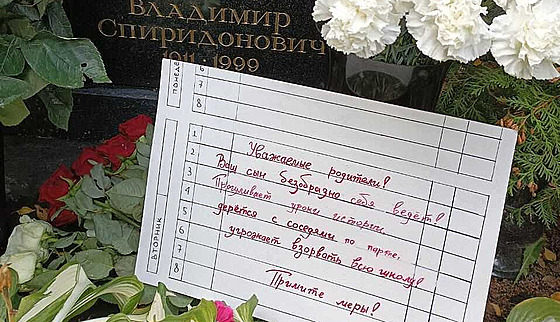 Владимир
Спиридонович
1911-1999
ПОНЕДЕ
6
7
8
ВТОРНИК
1
2
3
4
5
6
7
8
Уважаемые родители!
Ваш сын безбразно себя ведёт!
Прогуливает уроки истории,
дерётся с соседями по парте,
угрожает взорвать всю школу!
Примите меры!